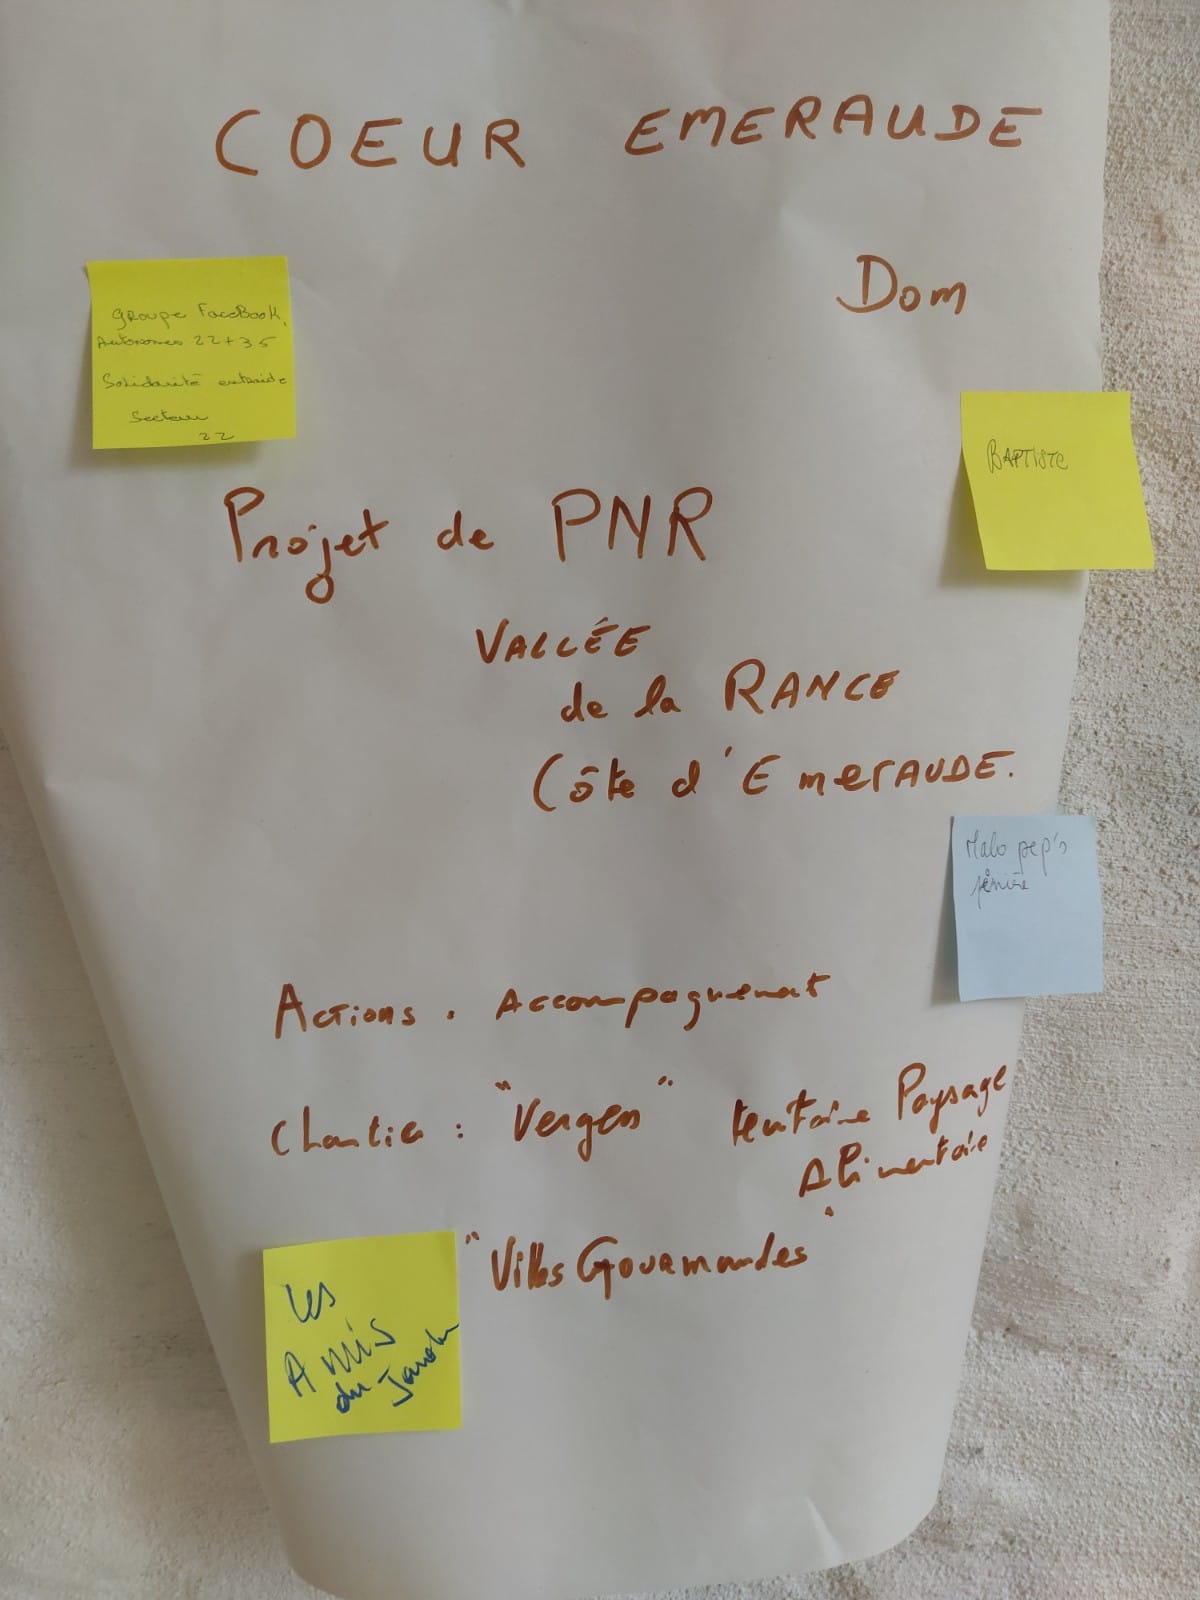 COEUR EMERAUDE
Dom
Groupe FaceBook,
Autonomes 22+35
Solidarité entraide
Secteur
22
BAPTISTE
Projet de PNR
VALLÉE
de la RANCE
Côte d'EmerAUDE.
Malo pep's
Actions . Accompagnement
Chantier : "Vergers"
Paysage
Alimentaire
"Villes Gourmandes"
Les
Amis
du Jardin